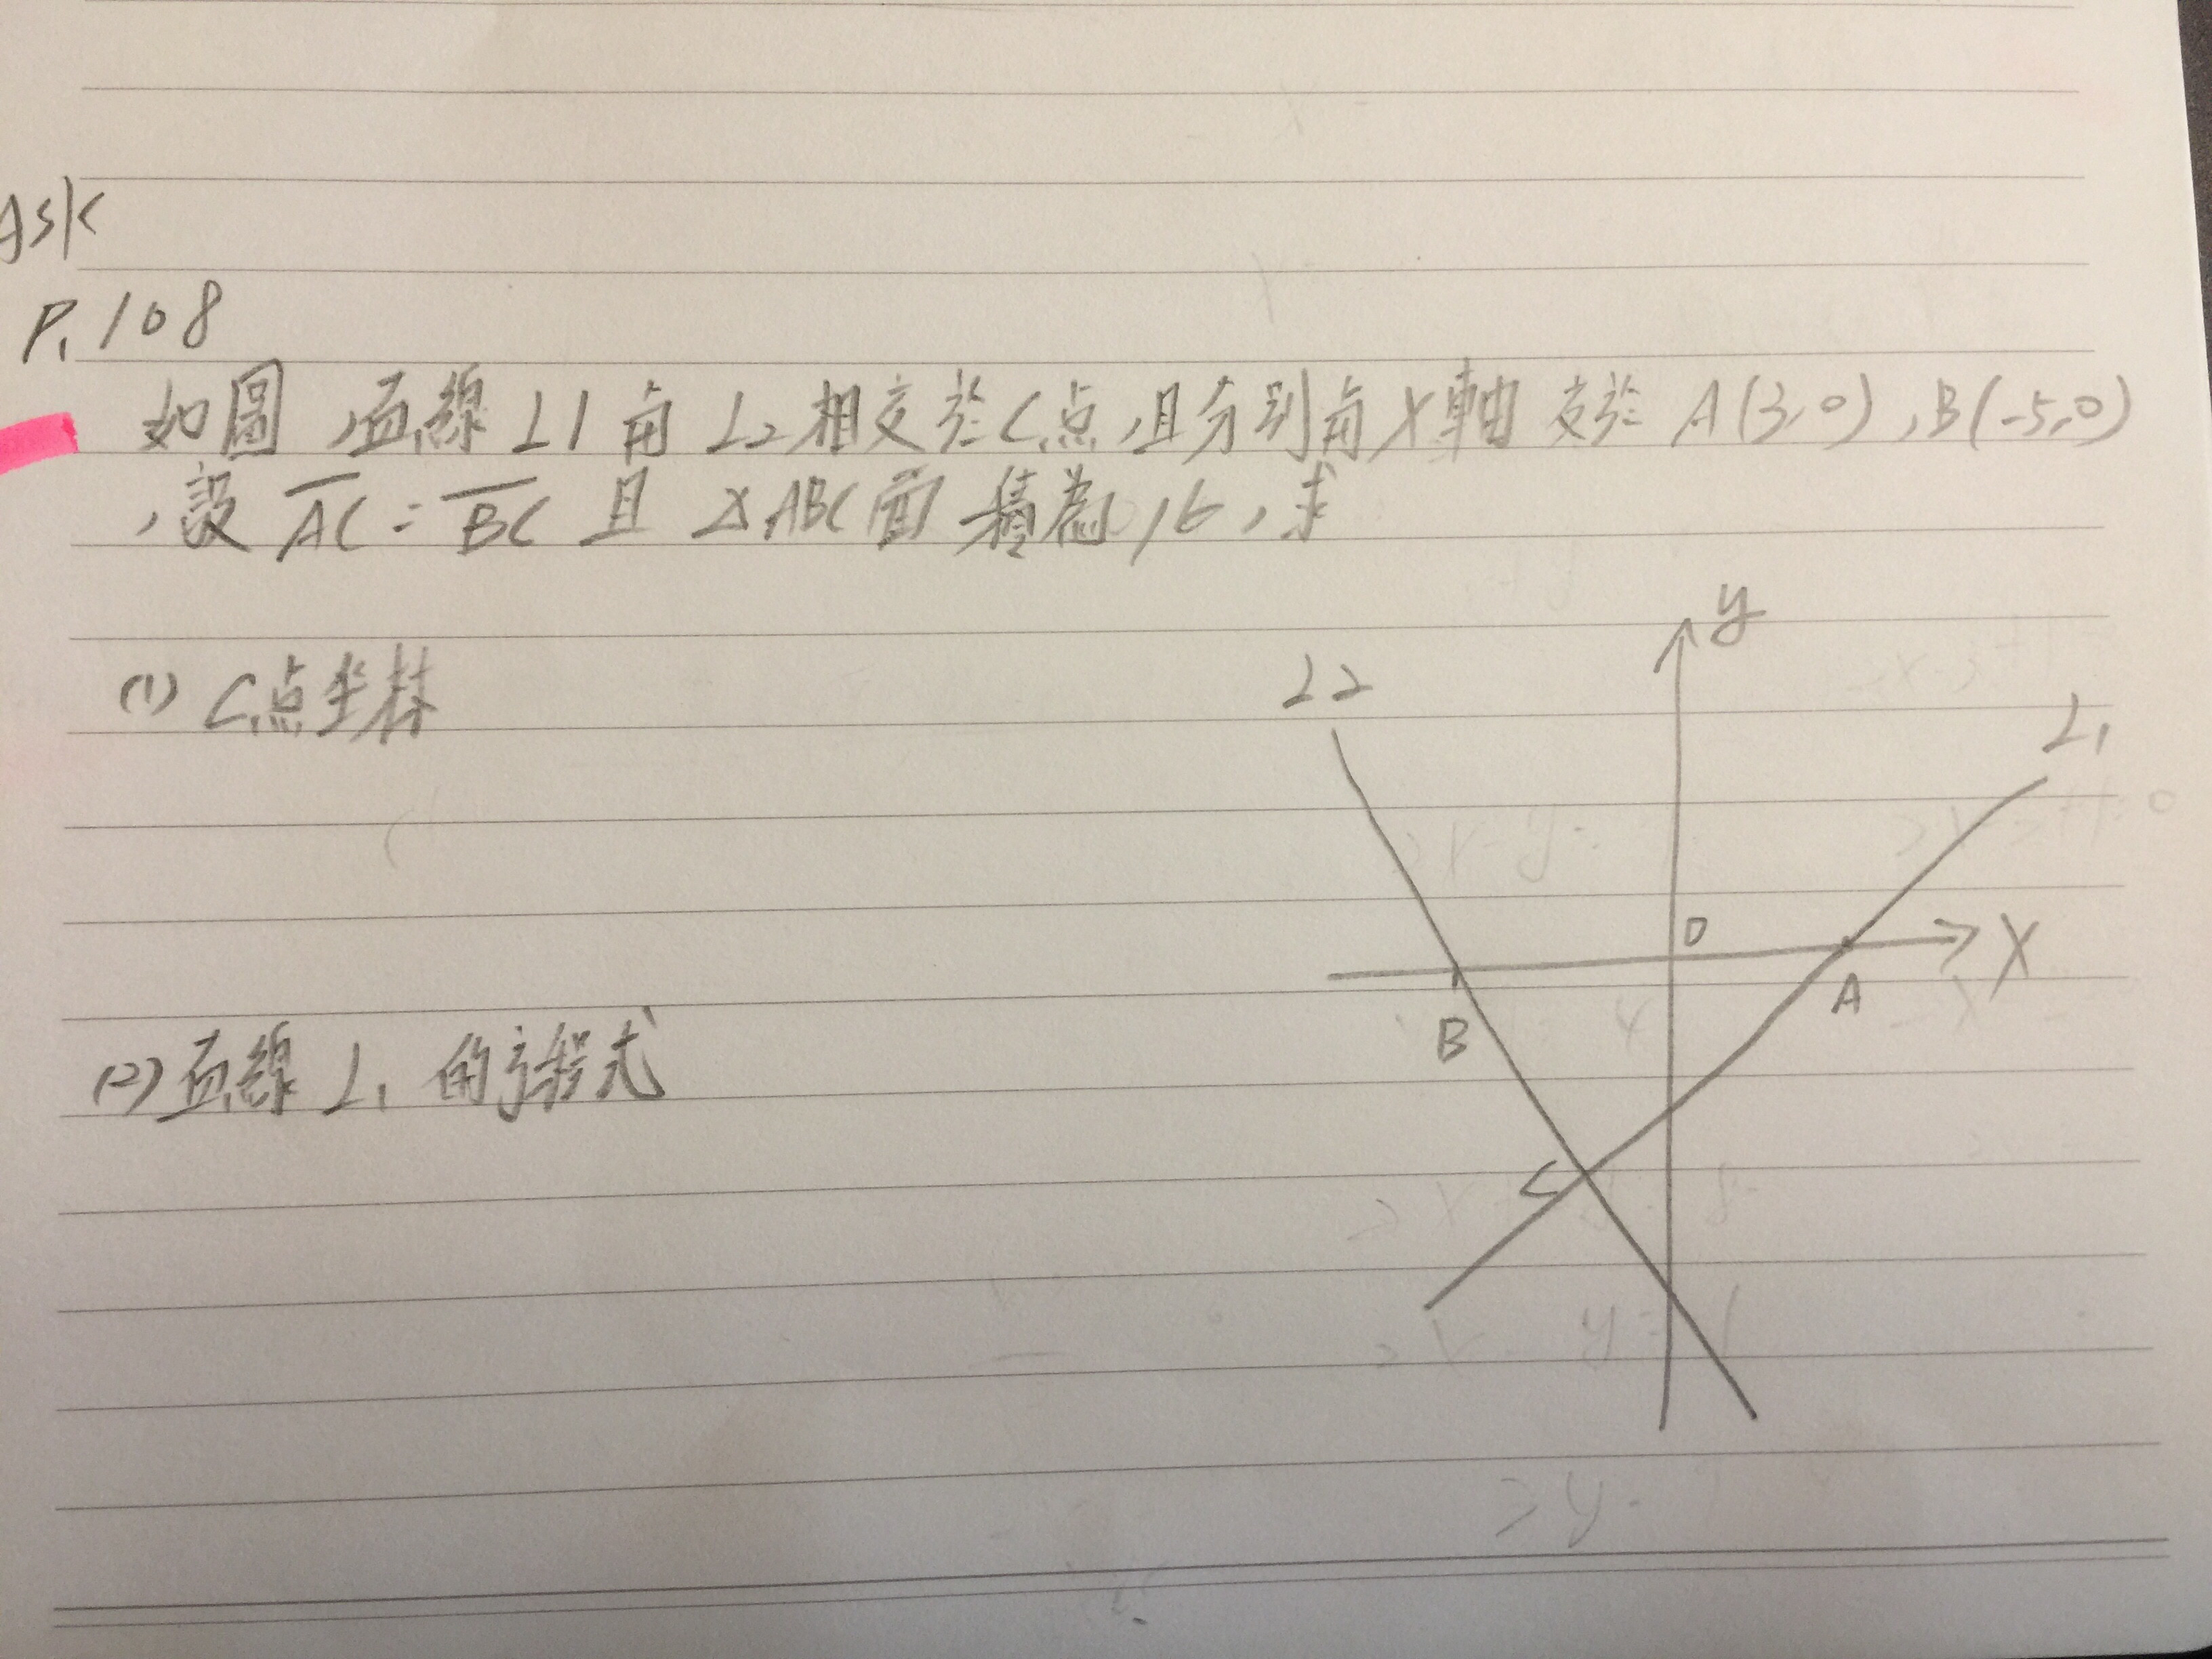 Ask
P.108
如圖,直線L1與L2相交於C点,且分別與X軸交於A(3,0),B(-5,0)
,設AC=BC且△ABC面積為16,求
(1) C点坐标
(2)直線L1的方程式
y
L2
L1
O
X
A
B
C